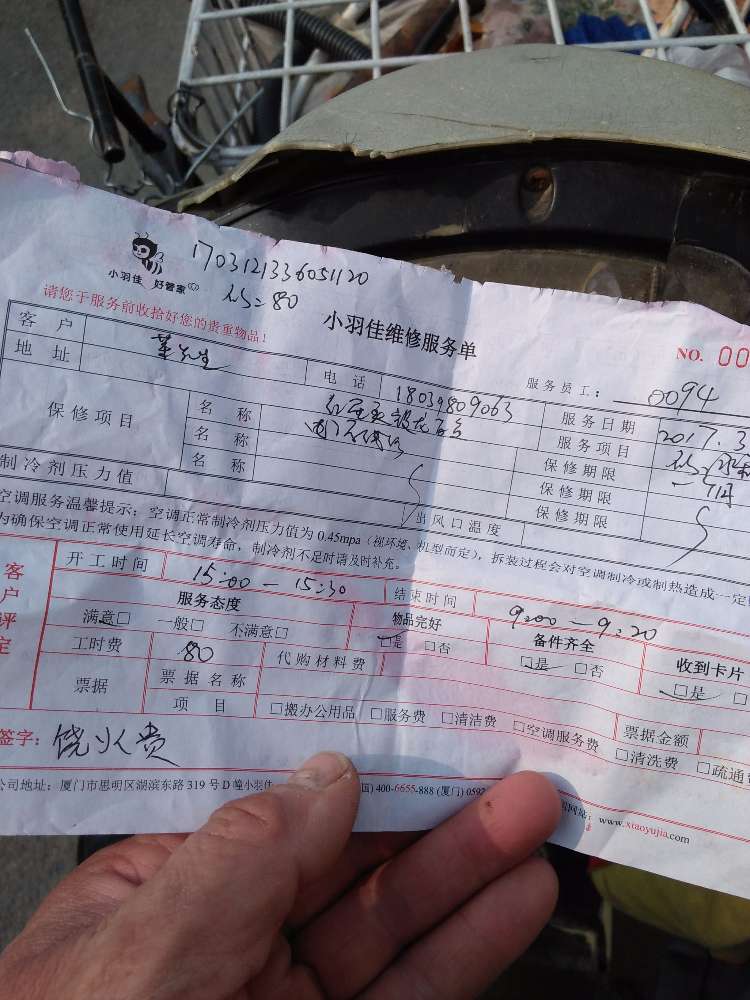 1703121336051120
小羽佳 好管家
=80
请您于服务前收拾好您的贵重物品!
小羽佳维修服务单
NO. 00
服务员工: 0094
客 户 电 话 18039809063 服务日期 2017.3
地 址 服务项目
保修项目 名 称 保修期限
名 称 保修期限
名 称 保修期限
制冷剂压力值 出风口温度
空调服务温馨提示: 空调正常制冷剂压力值为 0.45mpa (视环境、机型而定), 拆装过程会对空调制冷或制热造成一定
为确保空调正常使用延长空调寿命, 制冷剂不足时请及时补充。
客户评定
开工时间 15:00 — 15:30 结束时间 9:00 — 9:20
服务态度 物品完好 备件齐全 收到卡片
满意□ 一般□ 不满意□ □是 □否 □是 □否 □是 □
工时费 80 代购材料费
票据 票据名称 □搬办公用品 □服务费 □清洁费 □空调服务费 □清洗费 □疏通
项 目 票据金额
签字: 饶火贵
公司地址: 厦门市思明区湖滨东路 319 号 D 幢小羽佳 400-6655-888 (厦门) 0592 网址: www.xiaoyujia.com